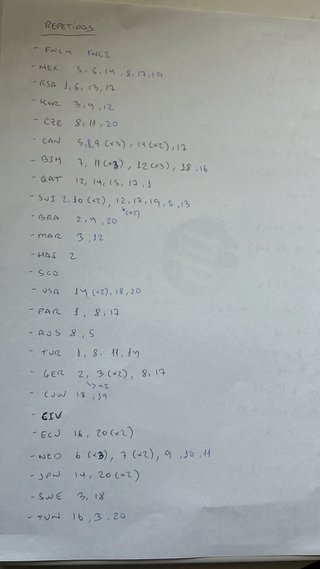 REPETIDAS
- FWC4 FWC2
- MEX 5, 6, 14, 8, 17, 19
- RSA 1, 6, 13, 17
- KOR 3, 4, 12
- CZE 8, 11, 20
- CAN 5, 8, 9 (x3), 14 (x2), 17
- BIH 7, 11 (x3), 12 (x3), 18, 16
- QAT 12, 14, 15, 17, 1
- SUI 2, 10 (x2), 12, 17, 19, 5, 13
- BRA 2, 4, 20 (x2)
- MAR 3, 12
- HAI 2
- SCO
- USA 14 (x2), 18, 20
- PAR 1, 8, 17
- AUS 8, 5
- TUR 1, 8, 11, 14
- GER 2, 3 (x2), 8, 17
- CUW 18, 19 x2
- CIV
- ECU 16, 20 (x2)
- NED 6 (x3), 7 (x2), 9, 10, 11
- JPN 14, 20 (x2)
- SWE 3, 18
- TUN 16, 3, 20